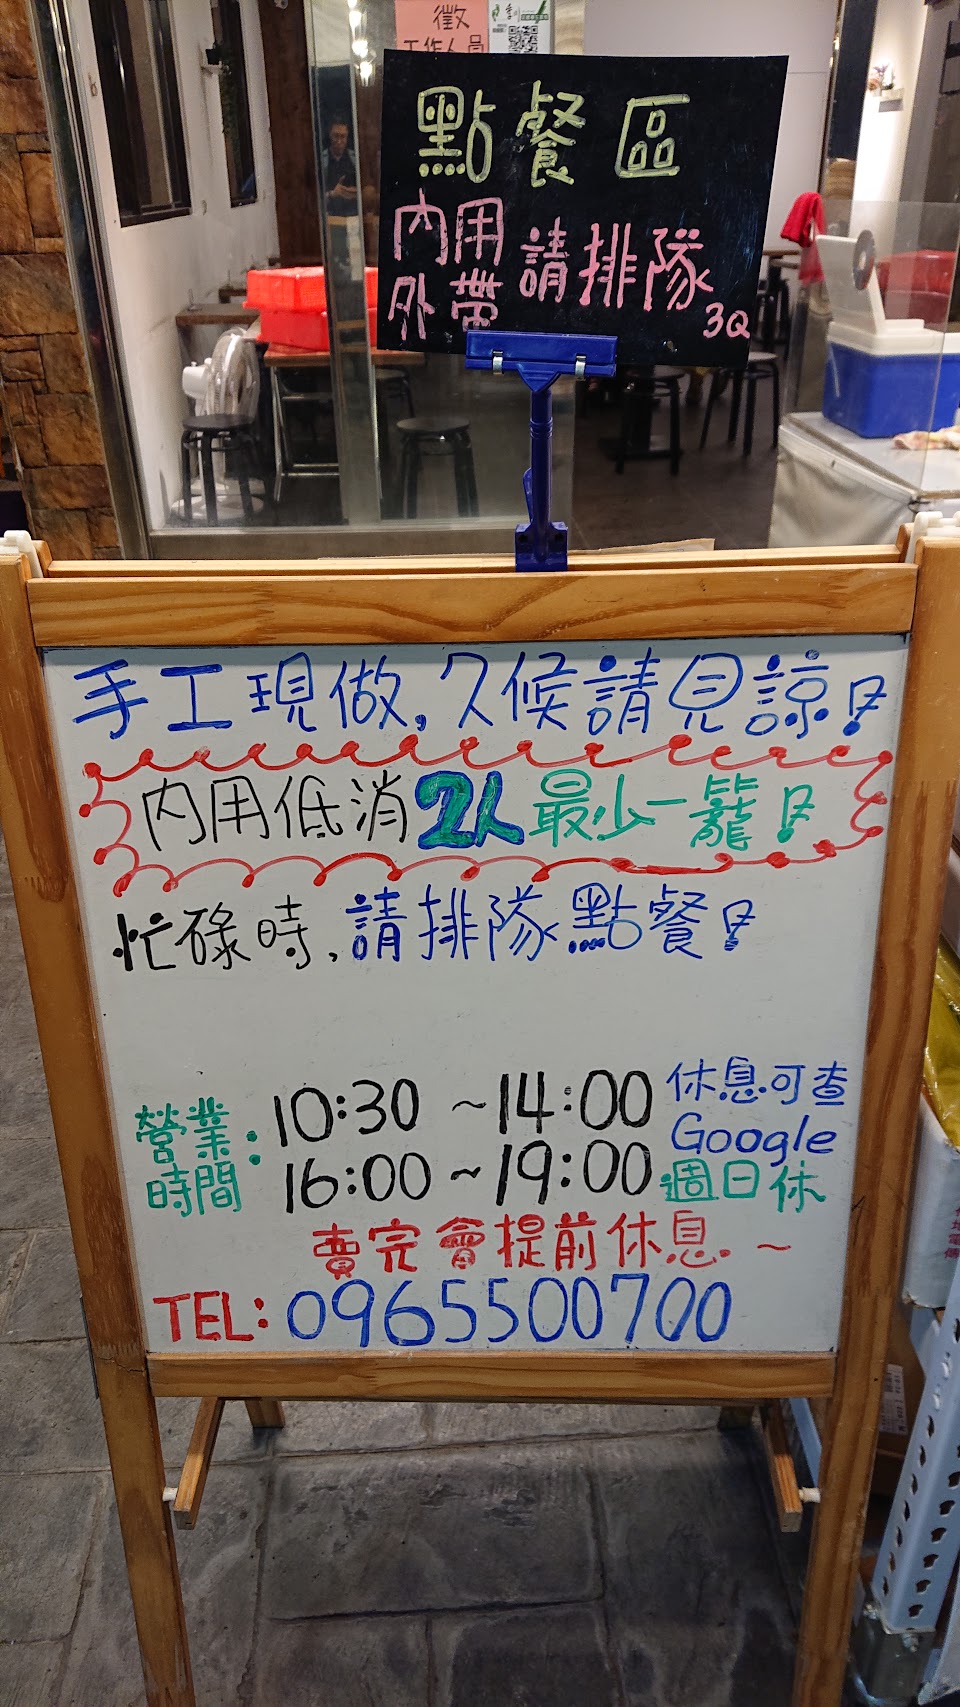 徵
工作人員
點餐區
內用
外帶
請排隊
3Q
手工現做,久候請見諒!
內用低消2人最少一籠!
忙碌時,請排隊點餐!
營業時間:
10:30 ~14:00
16:00~19:00
休息可查
Google
週日休
賣完會提前休息~
TEL:0965500700